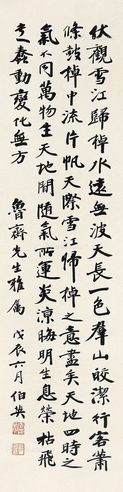 伏觀雪江歸棹水遠無波天長一色群山皎潔行客蕭
條鼓棹中流片帆天際雪江歸棹之意盡矣天地四時之
氣不同萬物生天地間隨氣所運炎涼晦明生息榮枯飛
走蠢動變化無方
魯齋先生雅屬 戊辰六月 伯英